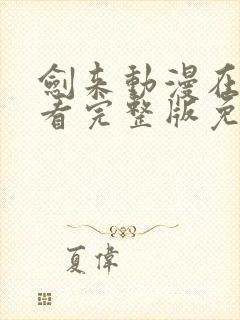 劍来動漫在
看完整版免
夏偉